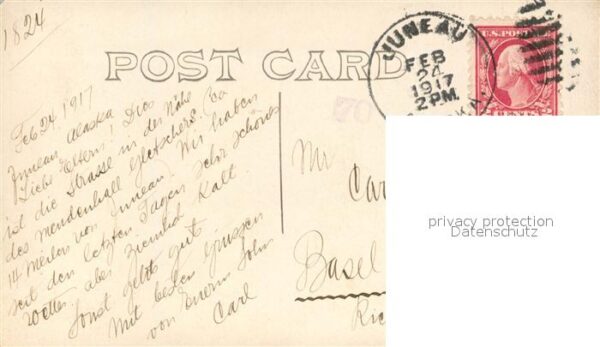 1824
POST CARD
JUNEAU
FEB
24
1917
2 PM.
U.S. POST
Feb 24, 1917
Juneau Alaska
Liebe Eltern! Dies
ist die Strasse in der Nähe
des Mendenhall Gletschers. Ca
14 Meilen von Juneau. Wir haben
seit den letzten Tagen sehr schönes
Wetter aber ziemlich Kalt
Sonst gehts gut
Mit besten Grüssen
von Eurem Sohn
Carl
Mr
Car
Basel
privacy protection
Datenschutz